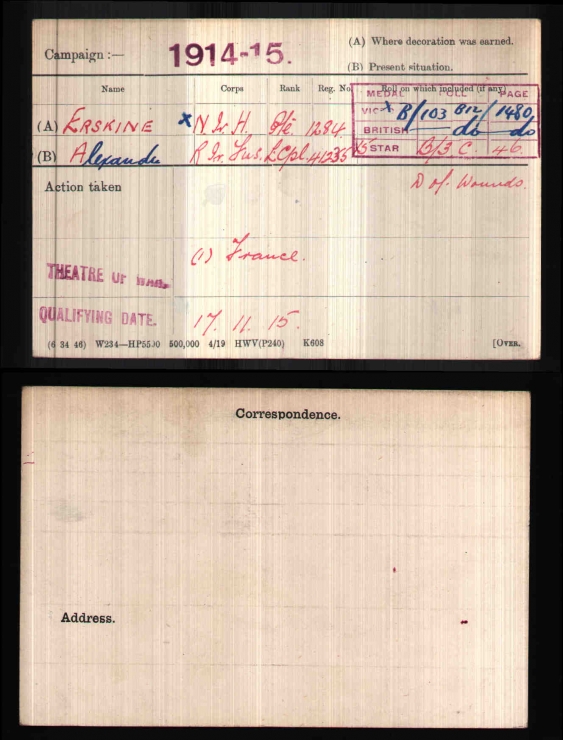 Campaign :— 1914-15. (A) Where decoration was earned.
(B) Present situation.
Name Corps Rank Reg. No. Roll on which included (if any).
MEDAL ROLL PAGE
(A) ERSKINE x N. Ir. H. Pte. 1284. VICx B/103 B12 1480
BRITISH do do
(B) Alexander R. Ir. Fus. L Cpl. 41235 15 STAR B/3. C. 46.
Action taken D of Wounds.
THEATRE OF WAR. (1) France.
QUALIFYING DATE. 17. 11. 15.
(6 34 46) W234—HP5590 500,000 4/19 HWV(P240) K608 [OVER.
Correspondence.
Address.